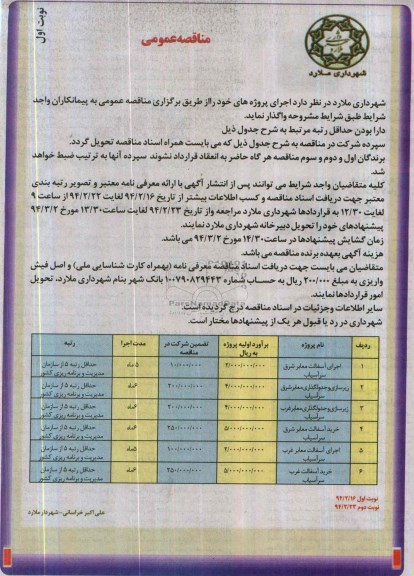 نوبت اول
مناقصه عمومی
شهرداری ملارد
شهرداری ملارد در نظر دارد اجرای پروژه های خود رااز طریق برگزاری مناقصه عمومی به پیمانکاران واجد
شرایط طبق شرایط مشروحه واگذار نماید.
دارا بودن حداقل رتبه مرتبط به شرح جدول ذیل
سپرده شرکت در مناقصه به شرح جدول ذیل که می بایست همراه اسناد مناقصه تحویل گردد.
برندگان اول و دوم و سوم مناقصه هر گاه حاضر به انعقاد قرارداد نشوند سپرده آنها به ترتیب ضبط خواهد
شد.
کلیه متقاضیان واجد شرایط می توانند پس از انتشار آگهی با ارائه معرفی نامه معتبر و تصویر رتبه بندی
معتبر جهت دریافت اسناد مناقصه و کسب اطلاعات بیشتر از تاریخ ۹۴/۲/۱۶ لغایت ۹۴/۲/۲۲ از ساعت ۹
لغایت ۱۲/۳۰ به قراردادها شهرداری ملارد مراجعه واز تاریخ ۹۴/۲/۲۳ لغایت ساعت ۱۳/۳۰ مورخ ۹۴/۳/۲
پیشنهادهای خود را تحویل دبیرخانه شهرداری ملارد نمایند.
زمان گشایش پیشنهادها در ساعت ۱۴/۳۰ مورخ ۹۴/۳/۲ می باشد.
هزینه آگهی بعهده برنده مناقصه می باشد.
متقاضیان می بایست جهت دریافت اسناد مناقصه معرفی نامه (بهمراه کارت شناسایی ملی) و اصل فیش
واریزی به مبلغ ۲۰۰/۰۰۰ ریال به حساب شماره ۱۰۰۷۹۰۸۲۹۴۴۳ بانک شهر بنام شهرداری ملارد، تحویل
امور قراردادها نمایند.
سایر اطلاعات وجزئیات در اسناد مناقصه درج گردیده است.
شهرداری در رد یا قبول هر یک از پیشنهادها مختار است.
ردیف نام پروژه برآورد اولیه پروژه به ریال تضمین شرکت در مناقصه مدت اجرا رتبه
۱ اجرای آسفالت معابر شرق سرآسیاب ۲/۰۰۰/۰۰۰/۰۰۰ ۱۰۰/۰۰۰/۰۰۰ ۵ ماه حداقل رتبه ۵ از سازمان مدیریت و برنامه ریزی کشور
۲ زیرسازی وجدولگذاری معابر شرق سرآسیاب ۴/۰۰۰/۰۰۰/۰۰۰ ۲۰۰/۰۰۰/۰۰۰ ۶ماه حداقل رتبه ۵ از سازمان مدیریت و برنامه ریزی کشور
۳ زیرسازی وجدولگذاری معابر غرب سرآسیاب ۴/۰۰۰/۰۰۰/۰۰۰ ۲۰۰/۰۰۰/۰۰۰ ۶ماه حداقل رتبه ۵ از سازمان مدیریت و برنامه ریزی کشور
۴ خرید آسفالت معابر شرق سرآسیاب ۵/۰۰۰/۰۰۰/۰۰۰ ۲۵۰/۰۰۰/۰۰۰ ۶ماه حداقل رتبه ۵ از سازمان مدیریت و برنامه ریزی کشور
۵ اجرای آسفالت معابر غرب سرآسیاب ۲/۰۰۰/۰۰۰/۰۰۰ ۱۰۰/۰۰۰/۰۰۰ ۵ماه حداقل رتبه ۵ از سازمان مدیریت و برنامه ریزی کشور
۶ خرید آسفالت غرب سرآسیاب ۵/۰۰۰/۰۰۰/۰۰۰ ۲۵۰/۰۰۰/۰۰۰ ۶ماه حداقل رتبه ۵ از سازمان مدیریت و برنامه ریزی کشور
نوبت اول ۹۴/۲/۱۶
نوبت دوم ۹۴/۲/۲۳
علی اکبر خراسانی - شهردار ملارد